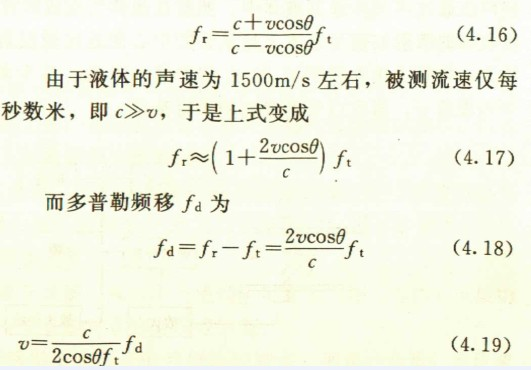 f_r = \frac{c+v\cos\theta}{c-v\cos\theta} f_t (4.16)
由于液体的声速为 1500m/s 左右，被测流速仅每
秒数米，即 c≫v，于是上式变成
f_r ≈ \left(1+\frac{2v\cos\theta}{c}\right) f_t (4.17)
而多普勒频移 f_d 为
f_d = f_r - f_t = \frac{2v\cos\theta}{c} f_t (4.18)
v = \frac{c}{2\cos\theta f_t} f_d (4.19)